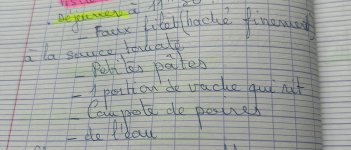 Déjeuner à 11
- Faux filet (haché finement)
à la sauce tomate
- Petites pâtes
- 1 portion de vache qui rit
- Compote de pommes
- de l'eau